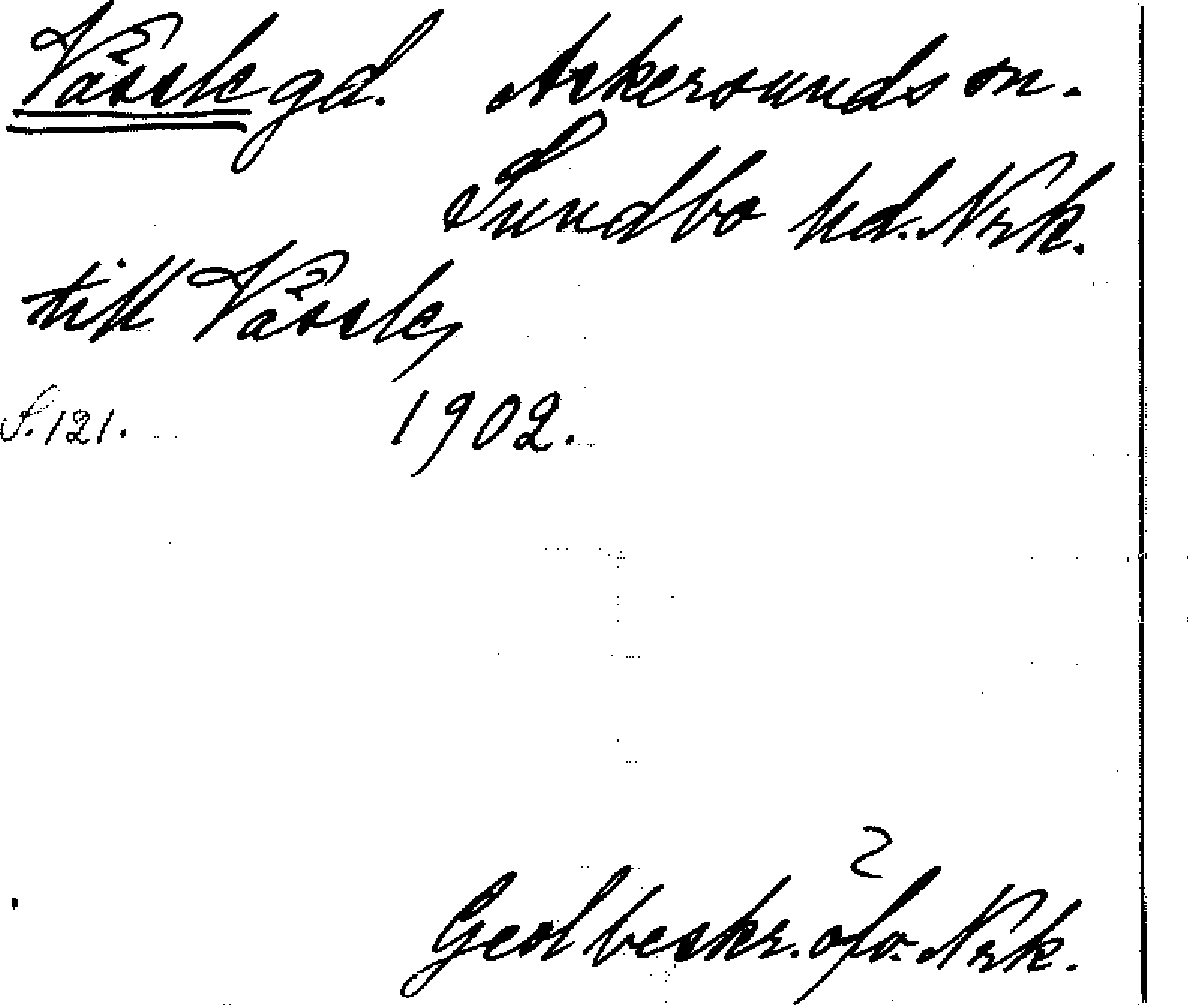 Vässle gd. Askersunds sn.
Sundbo hd. Nrk.
till Vässle,
S. 121. 1902.
Geol beskr. öfv. Nrk.